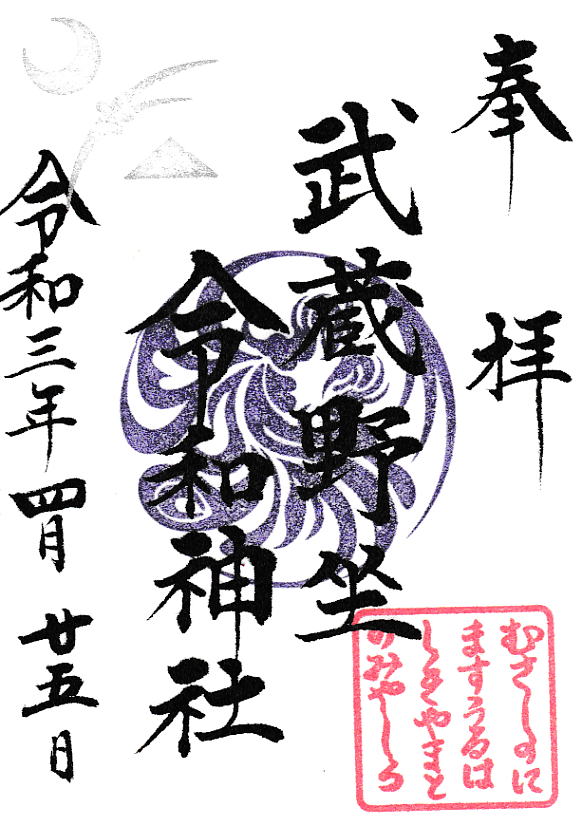 奉拝
武蔵野坐
令和神社
令和三年四月廿五日
むさしのに
ますうるは
しきやまと
のみやしろ